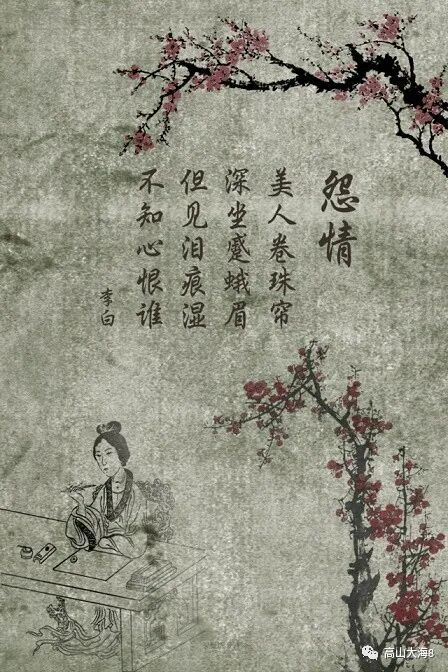 怨情
美人卷珠帘
深坐蹙蛾眉
但见泪痕湿
不知心恨谁
李白
高山大海8